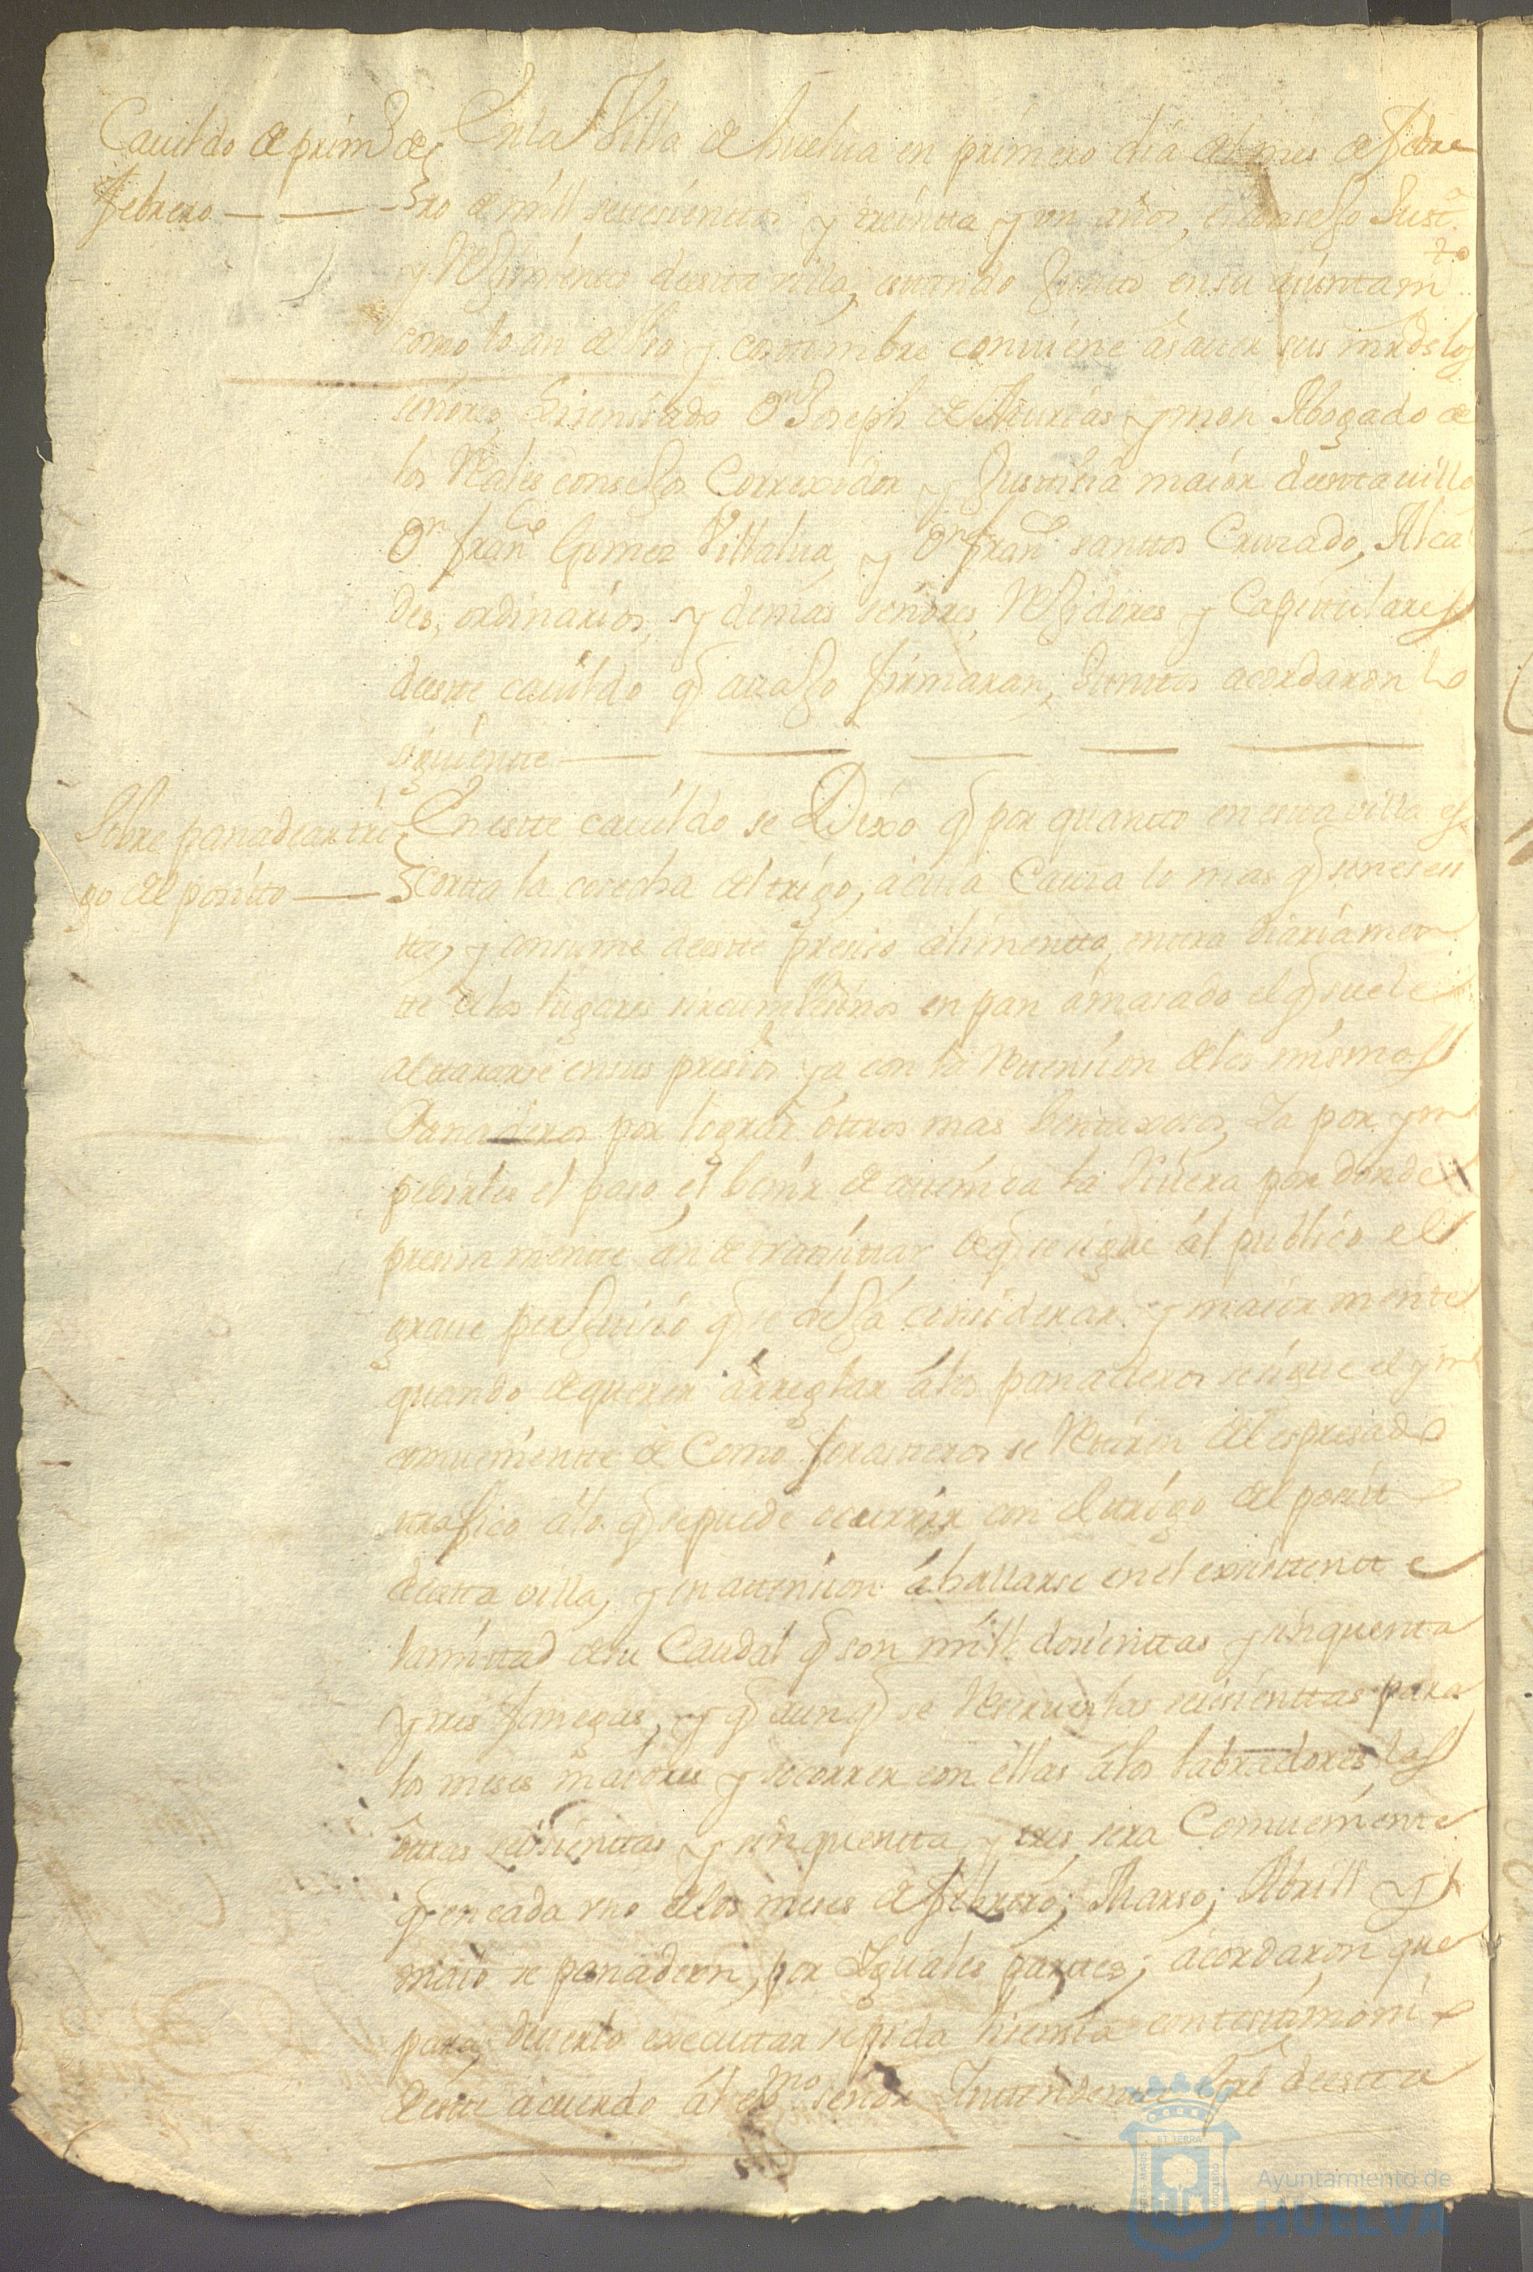 Cauildo de primº de
febrero
En la Villa de huelua en primero dia del mes de febre
ro de mill settesientos y treinta y un años, el consejo Justª
y Rejimiento de esta villa, estando junto en su aiuntamtº
como lo an de vso y costumbre conuiene asauer sus mrds los
señores Lisensiado Dn Joseph de Asturias ymon Abogado de
los Reales consejos Correxidor y Justisia maior de esta uilla
Dn franco Gomez Villalua, y Dn franco santtos Cruzado, Alca
des, ordinarios, y demas señores Rejidores y Capittulares
de este cauildo q auajo firmaran, Junttos acordaron lo
siguientte
Sobre panadear tri
go del positto
En estte cauildo se Dixo q por quantto en esta villa es
cortta la cosecha del trigo, a cuia Causa lo mas q se nesesi
tta, y consume de estte preciso alimentto, entra diariamen
te de los lugares sircumbesinos en pan amasado el q suele
alterarse en sus presios ya con la Retension de los mismos
Panaderos por lograr ottros mas bentaxosos, Ya por ym
pedirles el paso el benir de auenida la Riuera por donde
presisamente an de transittar de q se sigue al publico el
graue perjuisio q se deja considerar y maiormente
quando de querer arreglar a los panaderos se sigue el yn
conuenientte de Como forasteros se Retiren del espresado
trafico a lo q se puede ocurrir con el trigo del positt
de esta villa, y en attension a hallarse en el existtentte
la mittad de su Caudal q son mill dosienttas y sinquenta
y tres fanegas, y q aunq se Reseruen las seissienttas para
los meses maiores y socorrer con ellas a los labradores las
ottras seissienttas y sinquentta y tres sera Conueniente
q en cada vno de los meses de febrero; Marso; Abrill y
maio se panadeen, por Yguales parttes; acordaron que
para poderlo executtar se pida lisensia con testimoni
de este acuerdo al mo señor Inttendente de esta
ET TERRA
Ayuntamiento de
HUELVA